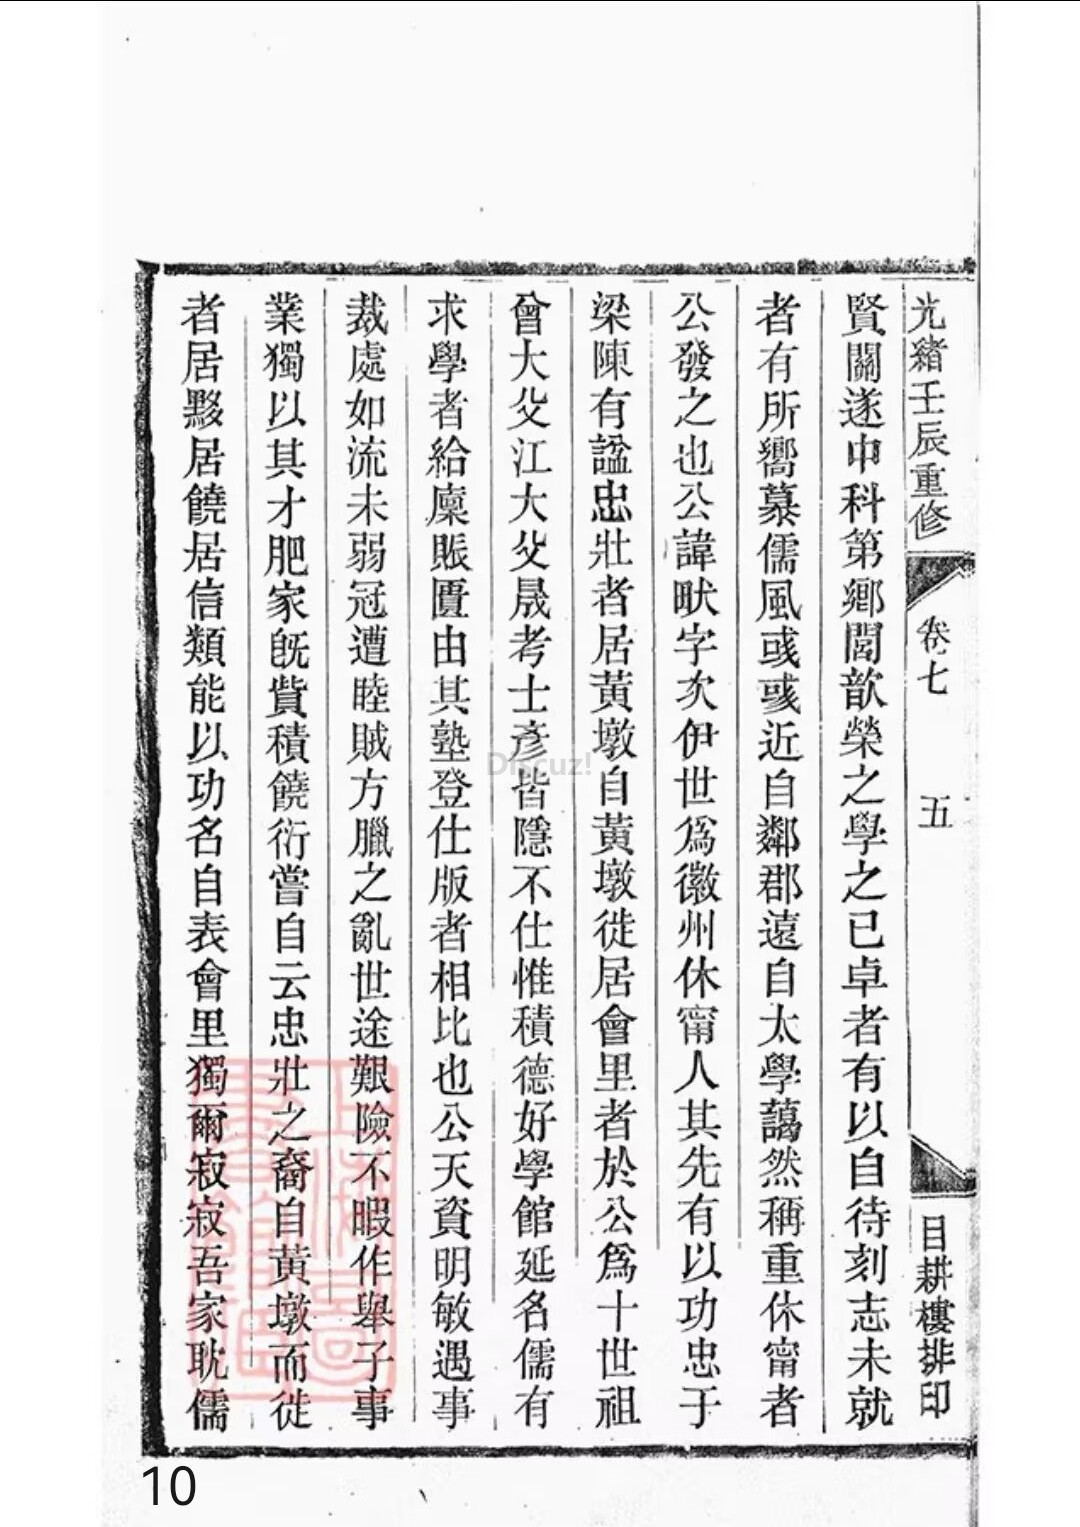 光緒壬辰重修 卷七 五 目耕樓排印
賢關遂中科第鄉閭歆榮之學之已卓者有以自待刻志未就
者有所嚮慕儒風彧彧近自鄰郡遠自太學藹然稱重休甯者
公發之也公諱畎字次伊世爲徽州休甯人其先有以功忠于
梁陳有諡忠壯者居黃墩自黃墩徙居會里者於公爲十世祖
曾大父江大父晟考士彥皆隱不仕惟積德好學館延名儒有
求學者給廩賑匱由其塾登仕版者相比也公天資明敏遇事
裁處如流未弱冠遭睦賊方臘之亂世途艱險不暇作舉子事
業獨以其才肥家旣貲積饒衍嘗自云忠壯之裔自黃墩而徙
者居黟居饒居信類能以功名自表會里獨爾寂寂吾家耽儒
Discuz!
10